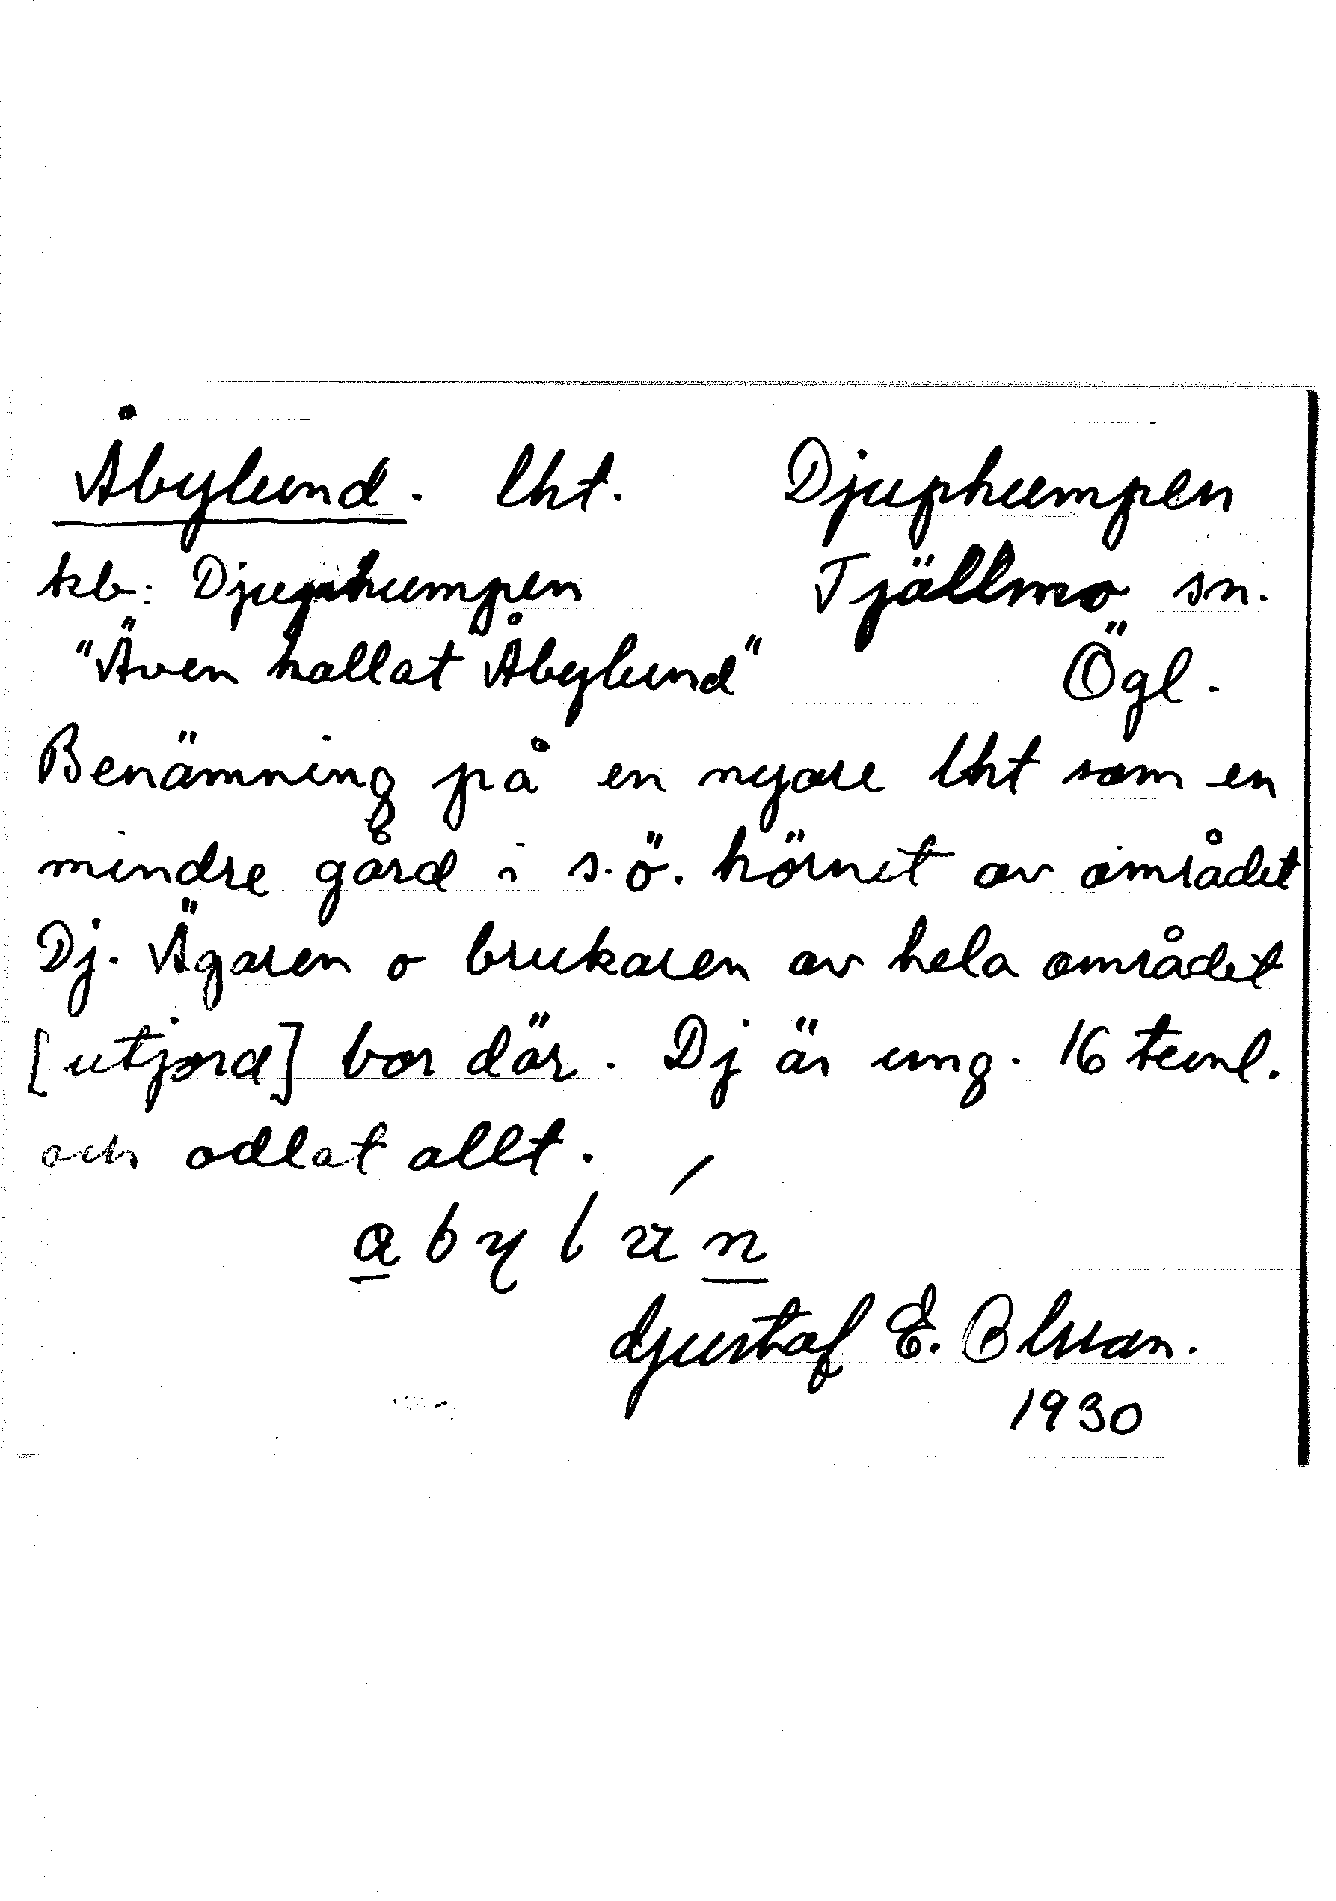 Åbylund. lht. Djuphumpen
kb: Djuphumpen Tjällmo sn.
"Även kallat Åbylund" Ögl.
Benämning på en nyare lht som en
mindre gård i s.ö. hörnet av området
Dj. Ägaren o brukaren av hela området
[utjord] bor där. Dj är ung. 16 tunl.
och odlat allt.
abylún
Gustaf E. Olsson.
1930